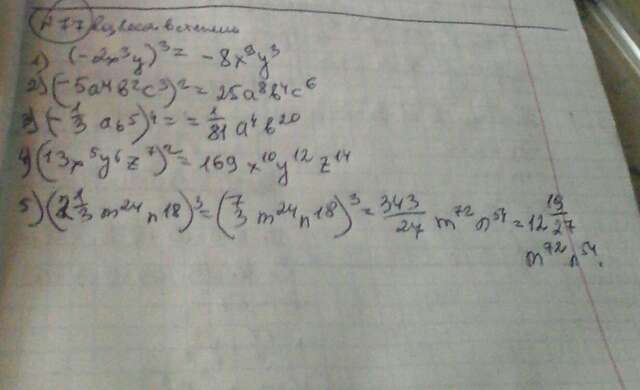 № 77 Возвести в степень
1) (-2x³y)³ = -8x⁹y³
2) (-5a⁴b²c³)² = 25a⁸b⁴c⁶
3) (-1/3 ab⁵)⁴ = = 1/81 a⁴b²⁰
4) (13x⁵y⁶z⁷)² = 169x¹⁰y¹²z¹⁴
5) (2 1/3 m²⁴n¹⁸)³ = (7/3 m²⁴n¹⁸)³ = 343/27 m⁷²n⁵⁴ = 12 19/27
m⁷²n⁵⁴.